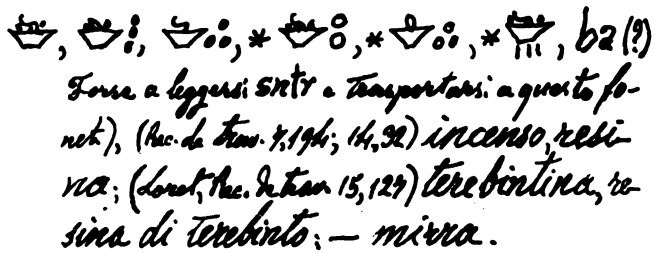 ba (?)
Forse a leggersi sntr e trasportarsi a questo fo-
net.), (Rec. de trav. 7,194; 14,32) incenso, resi-
na; (Loret, Rec. de trav. 15,127) terebintina, re-
sina di terebinto; — mirra.